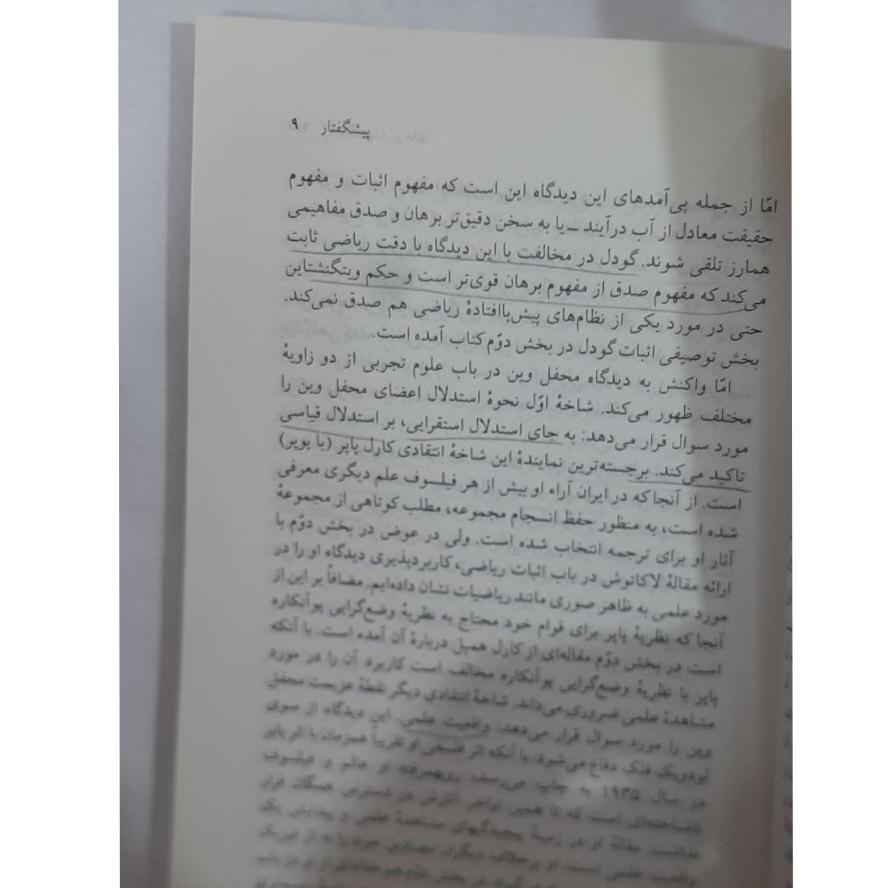 پیشگفتار ۹
امّا از جمله پی‌آمدهای این دیدگاه این است که مفهوم اثبات و مفهوم
حقیقت معادل از آب درآیند ــ یا به سخن دقیق‌تر برهان و صدق مفاهیمی
همارز تلقی شوند. گودل در مخالفت با این دیدگاه با دقت ریاضی ثابت
می‌کند که مفهوم صدق از مفهوم برهان قوی‌تر است و حکم ویتگنشتاین
حتی در مورد یکی از نظام‌های پیش‌پاافتادهٔ ریاضی هم صدق نمی‌کند.
بخش توصیفی اثبات گودل در بخش دوّم کتاب آمده است.
امّا واکنش به دیدگاه محفل وین در باب علوم تجربی از دو زاویهٔ
مختلف ظهور می‌کند. شاخهٔ اوّل نحوهٔ استدلال اعضای محفل وین را
مورد سوال قرار می‌دهد: به جای استدلال استقرایی، بر استدلال قیاسی
تاکید می‌کند. برجسته‌ترین نمایندهٔ این شاخهٔ انتقادی کارل پاپر (یا پوپر)
است. از آنجا که در ایران آراء او بیش از هر فیلسوف علم دیگری معرفی
شده است، به منظور حفظ انسجام مجموعه، مطلب کوتاهی از مجموعهٔ
آثار او برای ترجمه انتخاب شده است. ولی در عوض در بخش دوّم با
ارائه مقالهٔ لاکاتوش در باب اثبات ریاضی، کاربردپذیری دیدگاه او را در
مورد علمی به ظاهر صوری مانند ریاضیات نشان داده‌ایم. مضافاً بر این از
آنجا که نظریهٔ پاپر برای قوام خود محتاج به نظریهٔ وضع‌گرایی پوآنکاره
است در بخش دوّم مقاله‌ای از کارل همپل دربارهٔ آن آمده است. با آنکه
پاپر با نظریهٔ وضع‌گرایی پوآنکاره مخالف است کاربرد آن را در مورد
مشاهدهٔ علمی ضروری می‌داند. شاخهٔ انتقادی دیگر نقطهٔ عزیمت محفل
وین را مورد سوال قرار می‌دهد: واقعیت علمی. این دیدگاه از سوی
لودویک فلک دفاع می‌شود. با آنکه اثر فلسفی او تقریباً همزمان با اثر پاپر
در سال ۱۹۳۵ به چاپ می‌رسد، رویهمرفته او عالم و فیلسوف
ناشناخته‌ای است که تا همین اواخر آثارش در دسترس همگان قرار
نداشت. مقالهٔ او در زمینهٔ پیچیدگیهای مشاهدهٔ علمی و پیدایش یک
واقعیت علمی است. او برخلاف دیگران مصادیق خود را نه از فیزیک